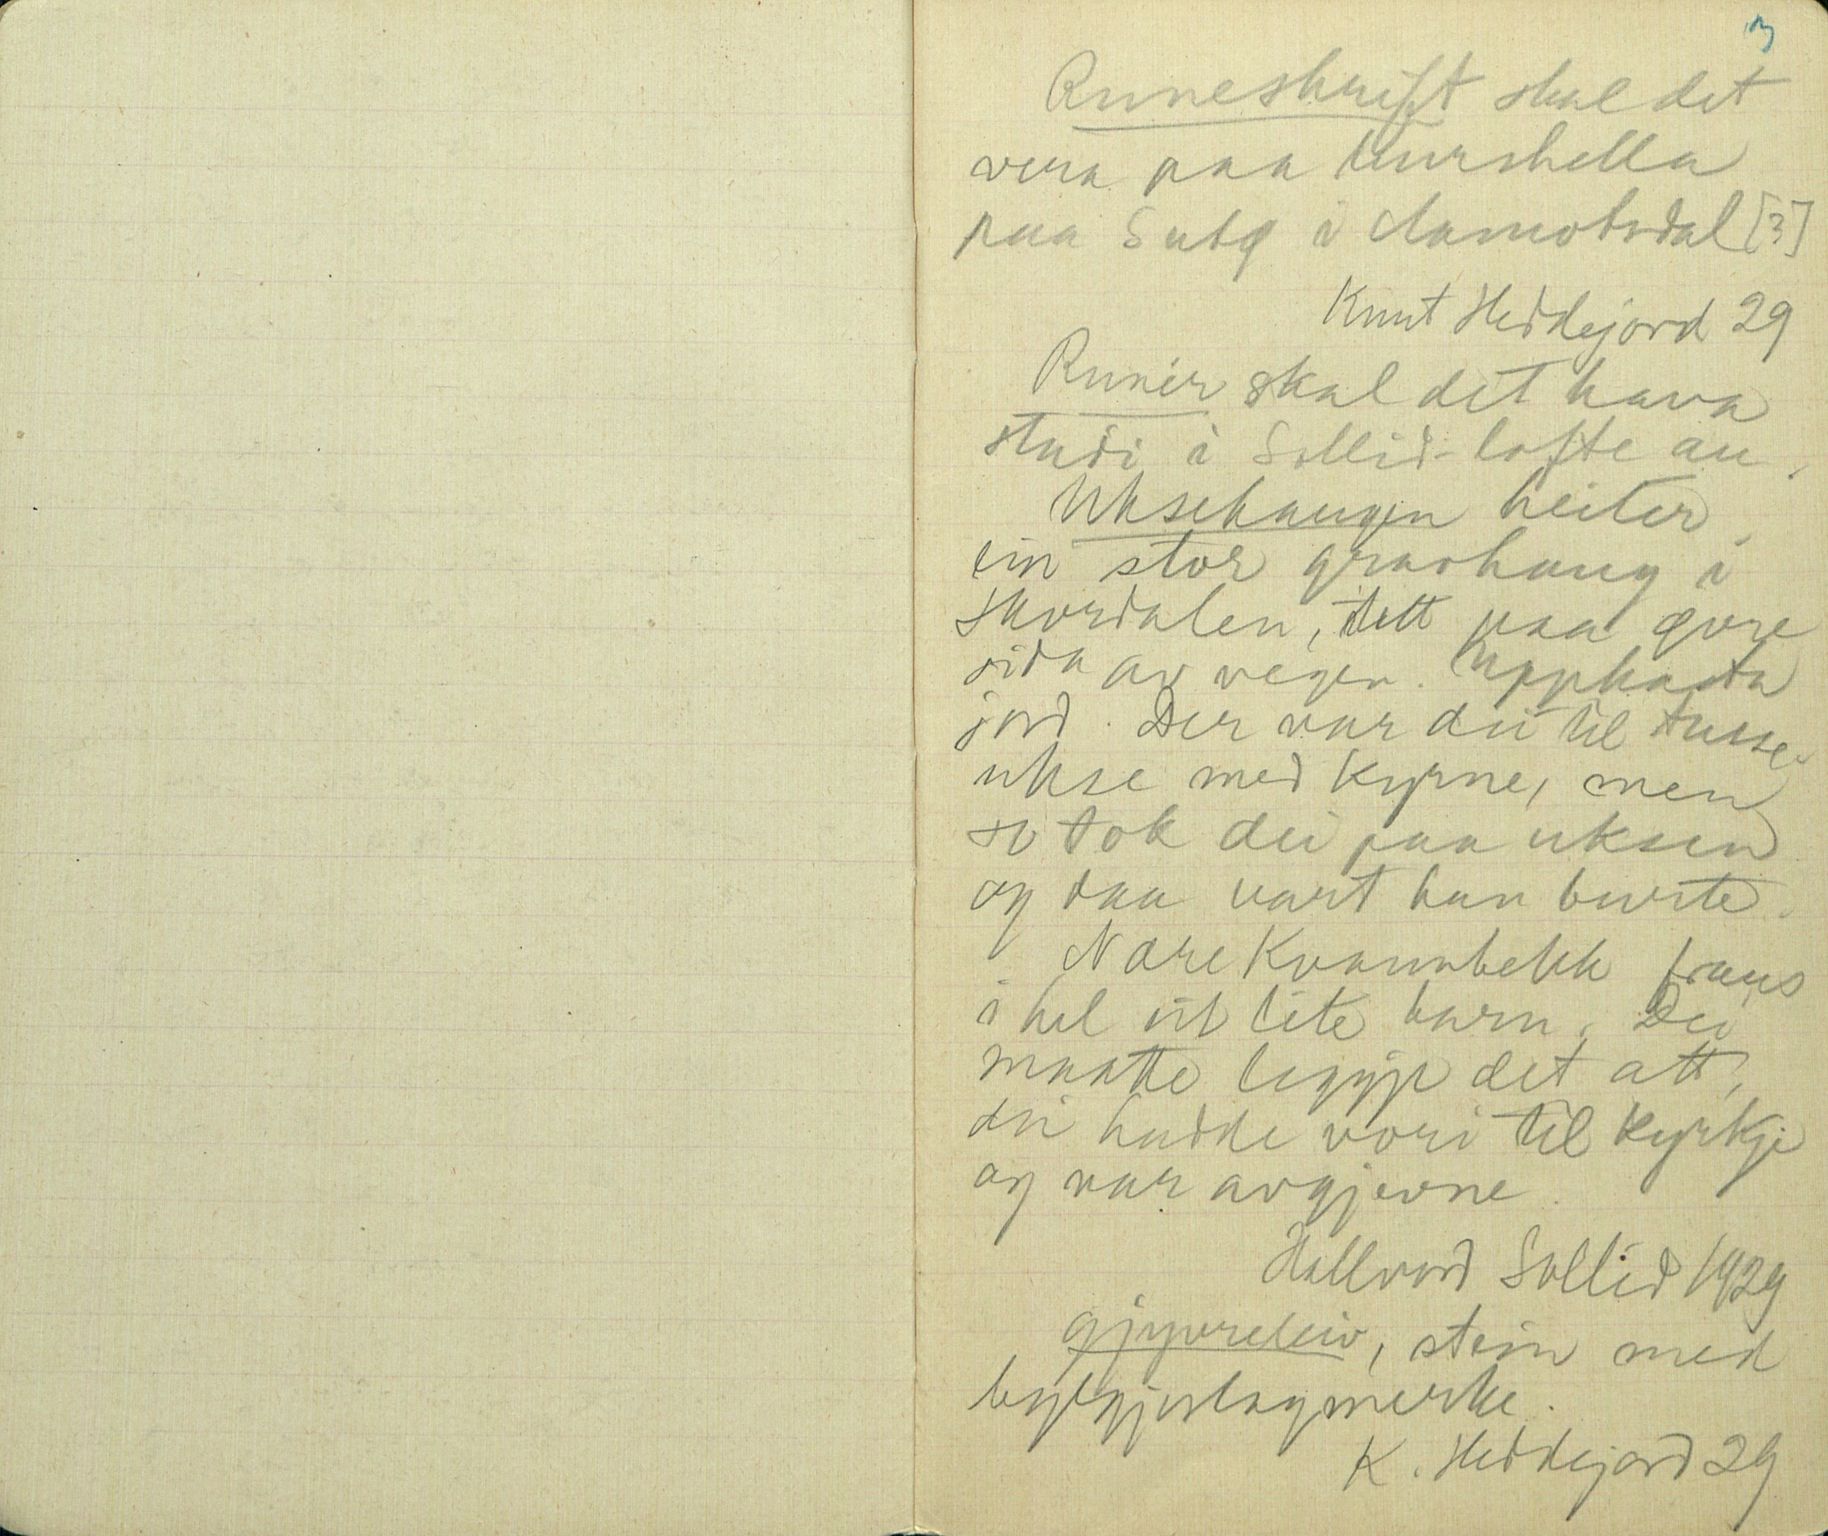 3
Runeskrift skal det
vera paa burshella
paa Suby i Aamotsdal [?]
Knut Heddejord 29
Runir skal det hava
stadi i Sollid-lofte au.
Uksehaugen heiter
ein stor gravhaug i
Skordalen, tett paa øvre
sida av vegen. Uppkasta
jord. Der var dei til tusse-
ukse med kyrne, men
so tok dei paa uksen
og daa vart han burte.
Nære Kvannbekk fraus
i hel eit lite barn. Dei
maatte leggje det att,
dei hadde vori til kyrkje
og var avgjevne.
Hallvord Sollid 1929
gjyvreleiv, stein med
bylgjeslagmerke.
K. Heddejord 29